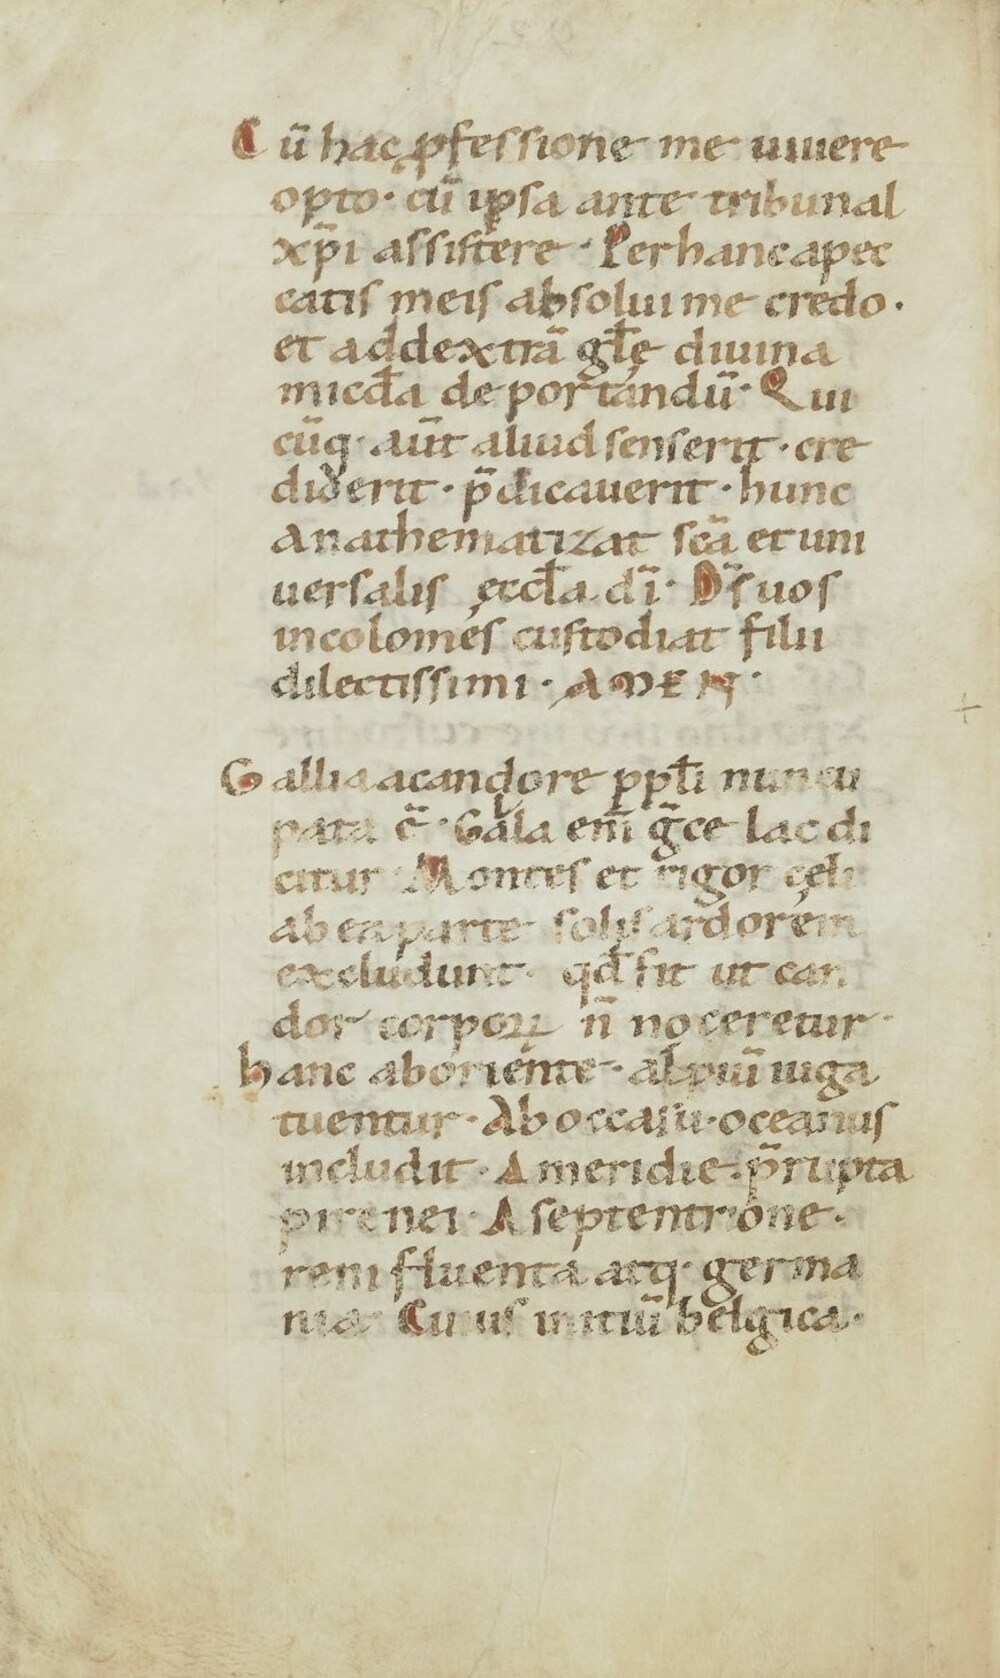 Cū hac ꝓfessione me uiuere
opto· cū ipsa ante tribunal
xp̄i assistere· Per hanc apec
catis meis absolui me credo·
et addextrā gl̄ę diuina
mic̄dia deportandū· Qui
cūq· aūt aliud senserit· cre
diderit· p̄dicauerit· hunc
anathematizat sc̄a et uni
uersalis ęccl̄a dī· D̄s uos
incolomes custodiat filii
dilectissimi· AMEN·
Gallia acandore ppl̄i nuncu
pata ē· Gala enī ḡce lac di
citur Montes et rigor cęli
ab ea parte solis ardorem
excludunt· qd̄ fit ut can
dor corpoꝝ n̄ noceretur·
hanc aboriente· alpiū iuga
tuentur· Ab occasu· oceanus
includit· A meridie· p̄rupta
pirenei· A septentrione·
reni fluenta atq· germa
nia· Cuius initiū belgica·